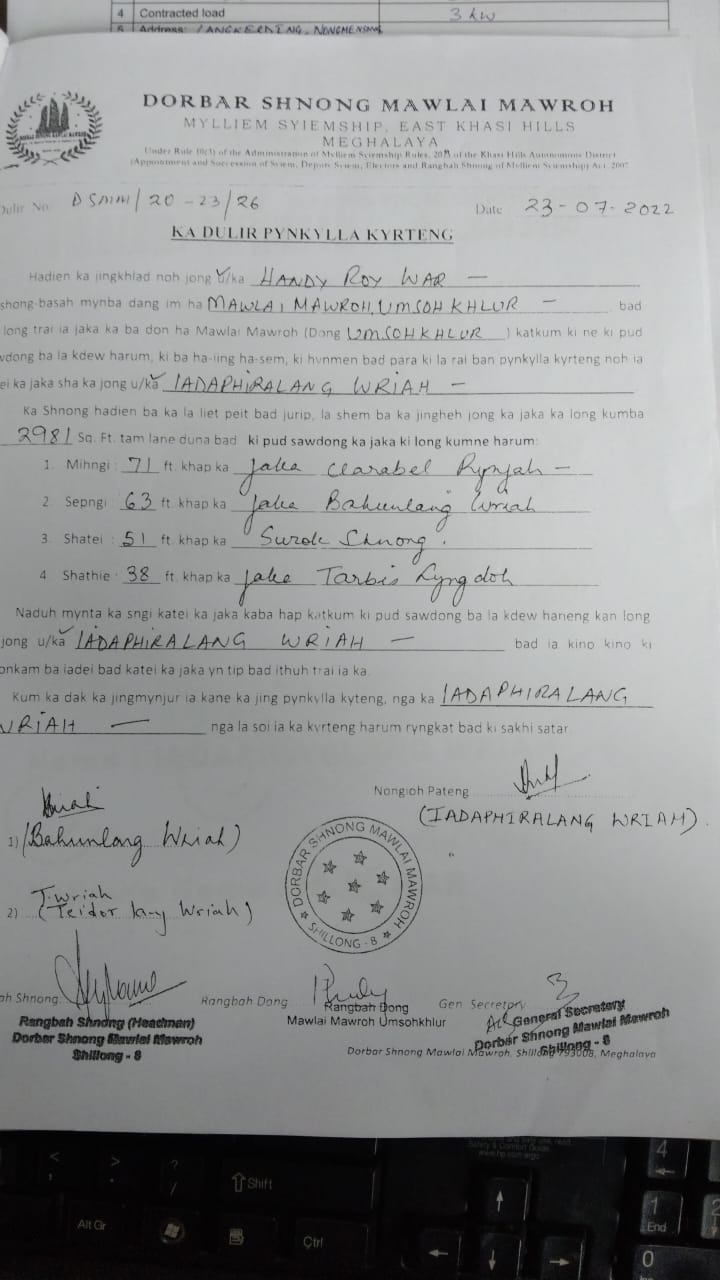 4 Contracted load 3 kw
5 Address: LANGKERDING, NONGMENSONG
DORBAR SHNONG MAWLAI MAWROH
MYLLIEM SYIEMSHIP, EAST KHASI HILLS
MEGHALAYA
Under Rule 10(3) of the Administration of Mylliem Syiemship Rules, of the Khasi Hills Autonomous District
(Appointment and Succession of Syiem, Deputy Syiem, Electors and Rangbah Shnong of Mylliem Syiemship) Act, 2007
Dulir No. DSMM/20-23/26 Date 23-07-2022
KA DULIR PYNKYLLA KYRTENG
Hadien ka jingkhlad noh jong u/ka HANDY ROY WAR —
shong-basah mynba dang im ha MAWLAI MAWROH, UMSOHKHLUR — bad
long trai ia jaka ka ba don ha Mawlai Mawroh (Dong UMSOHKHLUR ) katkum ki ne ki pud
wdong ba la kdew harum, ki ba ha-iing ha-sem, ki hynmen bad para ki la rai ban pynkylla kyrteng noh ia
ei ka jaka sha ka jong u/ka IADAPHIRALANG WRIAH —
Ka Shnong hadien ba ka la liet peit bad jurip, la shem ba ka jingheh jong ka jaka ka long kumba
2981 Sq. Ft. tam lane duna bad ki pud sawdong ka jaka ki long kumne harum:
1. Mihngi : 71 ft. khap ka Jaka Clarabel Rynjah —
2. Sepngi : 63 ft. khap ka Jaka Bahunlang Wriah
3. Shatei : 51 ft. khap ka Surok Shnong.
4. Shathie : 38 ft. khap ka Jaka Tarbis Lyngdoh
Naduh mynta ka sngi katei ka jaka kaba hap katkum ki pud sawdong ba la kdew haneng kan long
jong u/ka IADAPHIRALANG WRIAH — bad ia kino kino ki
onkam ba iadei bad katei ka jaka yn tip bad ithuh trai ia ka.
Kum ka dak ka jingmynjur ia kane ka jing pynkylla kyteng, nga ka IADAPHIRALANG
WRIAH — nga la soi ia ka kyrteng harum ryngkat bad ki sakhi satar.
Nongioh Pateng
(IADAPHIRALANG WRIAH).
Wriah
1) (Bahunlang Wriah)
DORBAR SHNONG MAWLAI MAWROH
SHILLONG - 8
T. Wriah
2) (Teidor lang Wriah)
ah Shnong Rangbah Dong Gen Secretory
Rangbah Shnong (Headman)
Dorbar Shnong Mawlai Mawroh
Shillong - 8
Rangbah Dong
Mawlai Mawroh Umsohkhlur
General Secretery
Dorbar Shnong Mawlai Mawroh
Shillong - 8
Dorbar Shnong Mawlai Mawroh, Shillong 793008, Meghalaya
Shift
Alt Gr
Ctrl
4
1
End
0